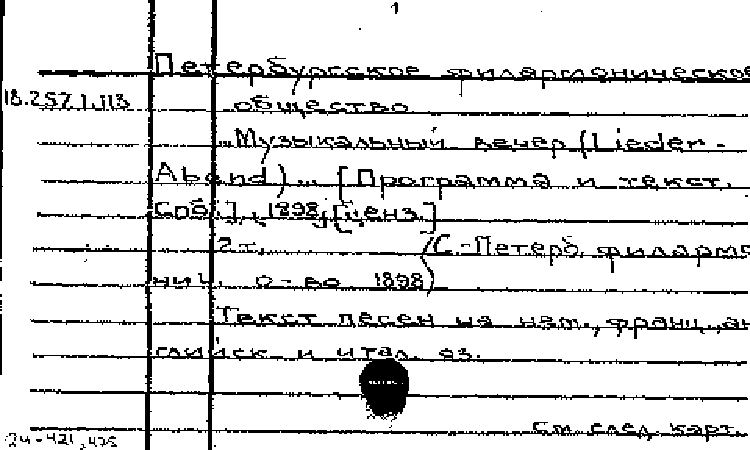 1
Петербургское филармоническое
18.257.1.113 общество
„Музыкальный вечер (Lieder-
Abend)„. [Программа и текст.
Спб.], 1898, [ценз.]
2 т. (С.-Петерб. филармо
нич. о-во 1898)
Текст песен на нем., франц., ан
глийск. и итал. яз.
См. след. карт.